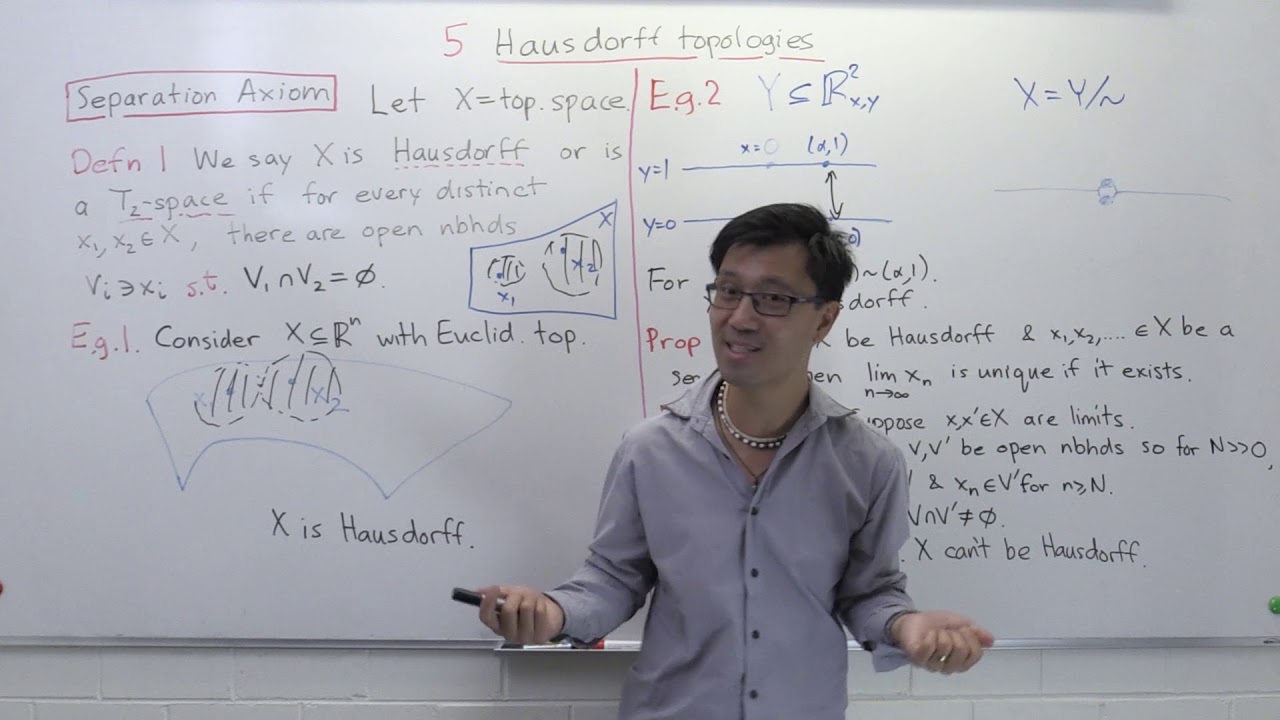 5 Hausdorff topologies
Separation Axiom Let X = top. space.
Defn 1 We say X is Hausdorff or is
a T₂-space if for every distinct
x₁, x₂ ∈ X, there are open nbhds
Vᵢ ∋ xᵢ s.t. V₁ ∩ V₂ = ∅.
X
x₁
x₂
E.g.1. Consider X ⊆ ℝⁿ with Euclid. top.
x₂
X is Hausdorff.
E.g.2 Y ⊆ ℝ²ₓ,ᵧ X = Y/~
x=0 (α,1)
y=1
y=0 0)
For ~(α,1).
dorff.
Prop X be Hausdorff & x₁,x₂,.... ∈ X be a
lim xₙ is unique if it exists.
n→∞
x,x' ∈ X are limits.
V,V' be open nbhds so for N>>0,
& xₙ ∈ V' for n ≥ N.
V∩V' ≠ ∅.
X can't be Hausdorff.